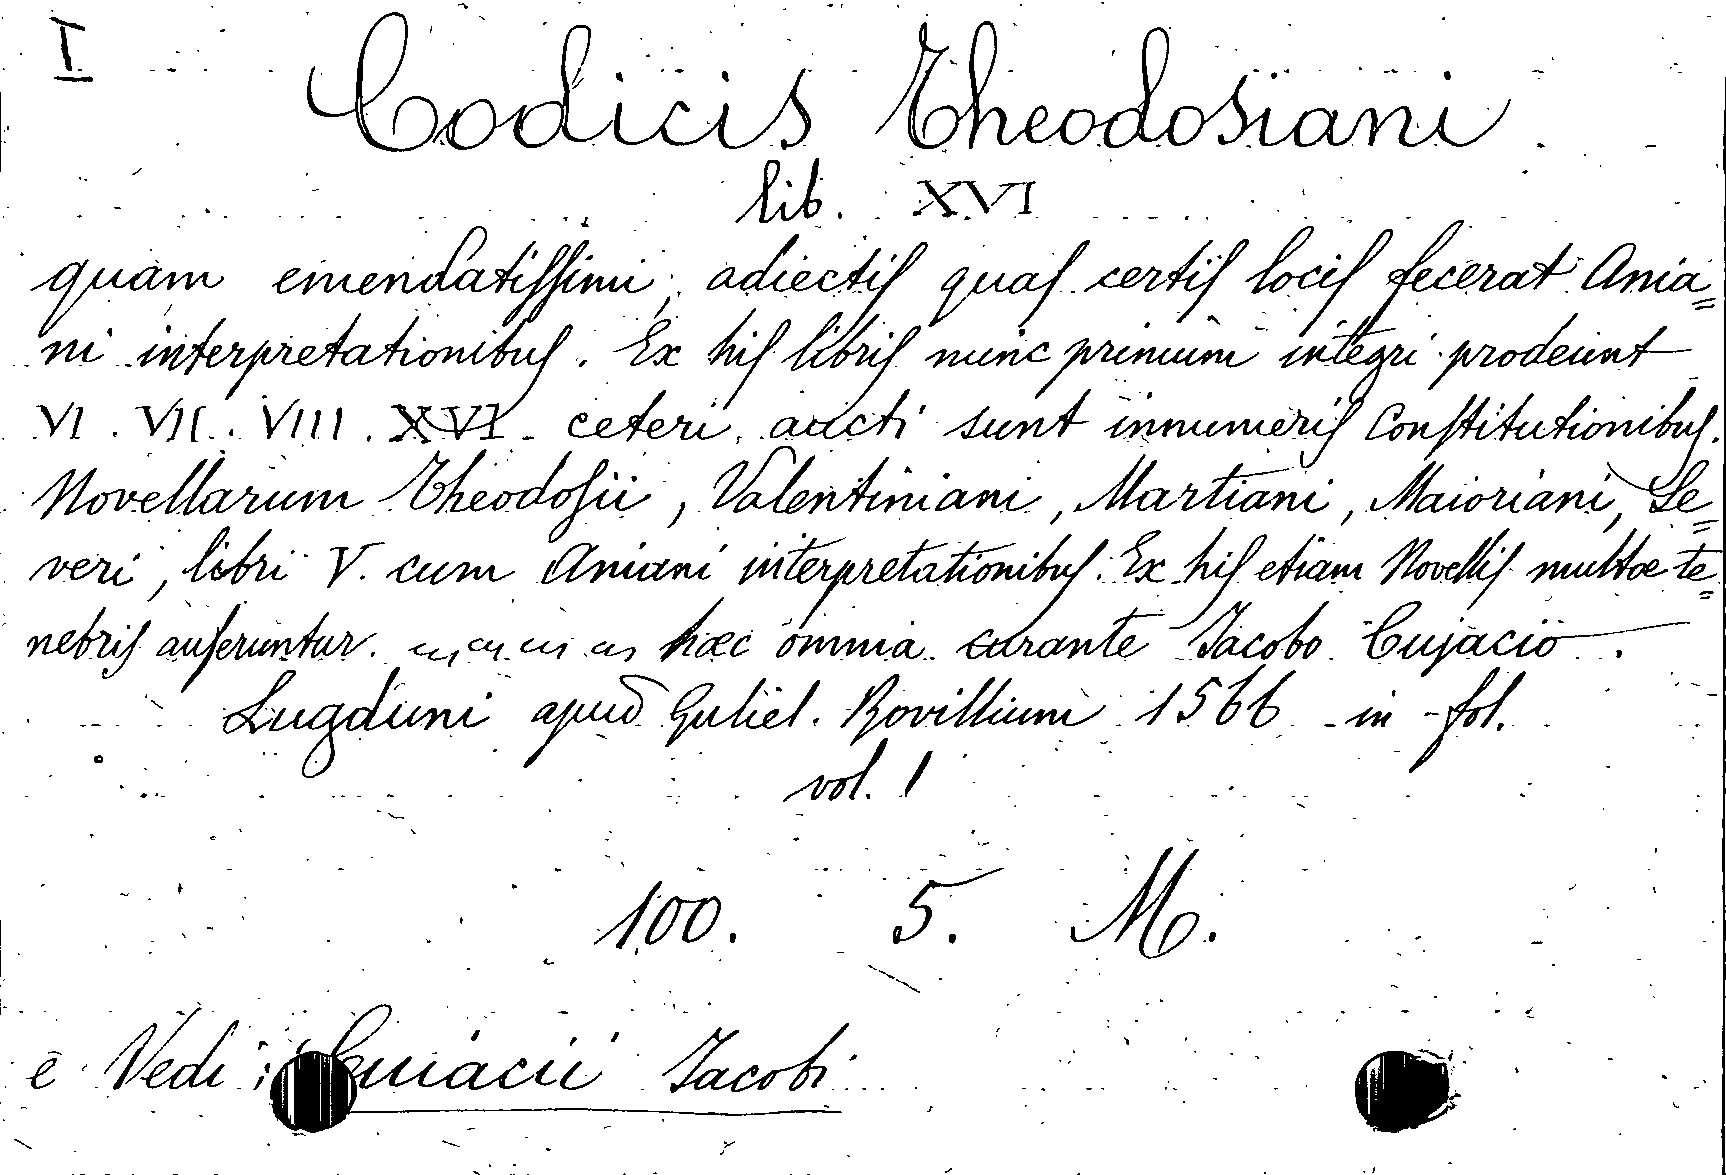 I
Codicis Theodosiani
lib. XVI
quam emendatiſſimi, adiectiſ quaſ certiſ lociſ fecerat Ania=
ni interpretationibuſ. Ex hiſ libriſ nunc primum integri prodeunt
VI. VII. VIII. XVI. ceteri aucti sunt innumeriſ Conſtitutionibuſ.
Novellarum Theodoſii, Valentiniani, Martiani, Maioriani, Se=
veri, libri V. cum Aniani interpretationibuſ. Ex hiſ etiam Novelliſ multæ te=
nebriſ auferuntur. hæc omnia curante Jacobo Cujacio.
Lugduni apud Guliel. Rovillium 1566 in-fol.
vol. 1
100. 5. M.
e Vedi: Cuiacii Jacobi